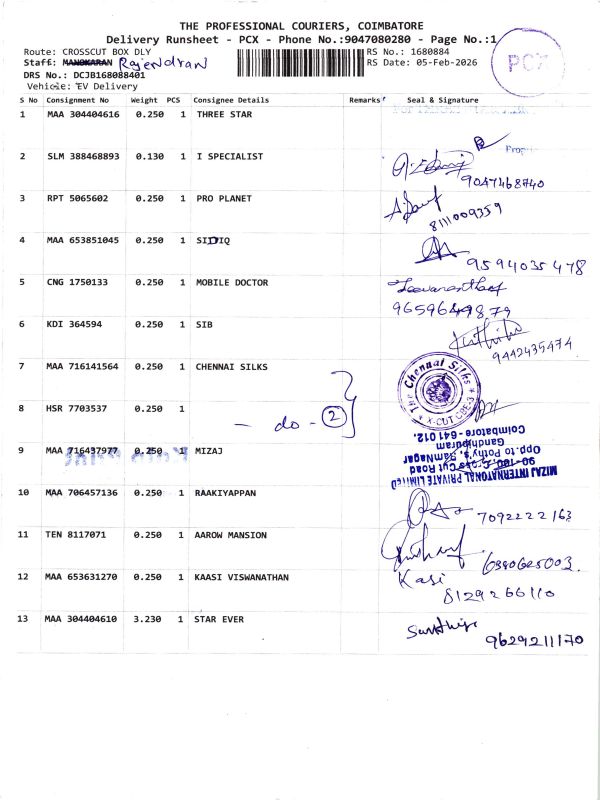 THE PROFESSIONAL COURIERS, COIMBATORE
Delivery Runsheet - PCX - Phone No.:9047080280 - Page No.:1
Route: CROSSCUT BOX DLY
RS No.: 1680884
PCX
Staff: MANOKARAN Rajendran
RS Date: 05-Feb-2026
DRS No.: DCJB168088401
Vehicle: EV Delivery
S No Consignment No Weight PCS Consignee Details Remarks Seal & Signature
1 MAA 304404616 0.250 1 THREE STAR
2 SLM 388468893 0.130 1 I SPECIALIST
9047468740
3 RPT 5065602 0.250 1 PRO PLANET
8111009359
4 MAA 653851045 0.250 1 SIDIQ
9594035478
5 CNG 1750133 0.250 1 MOBILE DOCTOR
9659649879
6 KDI 364594 0.250 1 SIB
9442435474
7 MAA 716141564 0.250 1 CHENNAI SILKS
The Chennai Silks
X-CUT CBE-3
8 HSR 7703537 0.250 1
- do - 2
9 MAA 716437977 0.250 1 MIZAJ
MIZAJ INTERNATIONAL PRIVATE LIMITED
Cut Road
Opp.to Pothy's, RamNagar
Gandhipuram
Coimbatore - 641 012.
10 MAA 706457136 0.250 1 RAAKIYAPPAN
7092222163
11 TEN 8117071 0.250 1 AAROW MANSION
6380625003.
12 MAA 653631270 0.250 1 KAASI VISWANATHAN
Kasi
8129266110
13 MAA 304404610 3.230 1 STAR EVER
9629211170